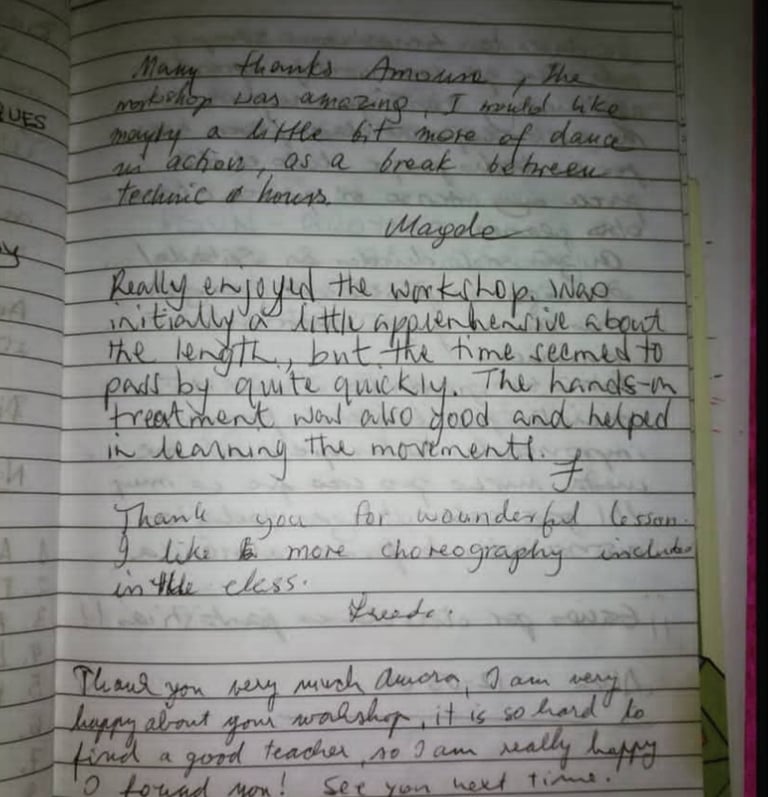 Many thanks Amoura, the
workshop was amazing, I would like
mayby a little bit more of dance
in action, as a break between
technic hours.
Magda
Really enjoyed the workshop. Was
initially a little apprenhensive about
the length, but the time seemed to
pass by quite quickly. The hands-on
treatment was also good and helped
in learning the movements.
F
Thank you for wounderful lesson.
I like more choreography include
in the class.
Thank you very much Amora, I am very
happy about your workshop, it is so hard to
find a good teacher, so I am really happy
I found you! See you next time.
UES
y